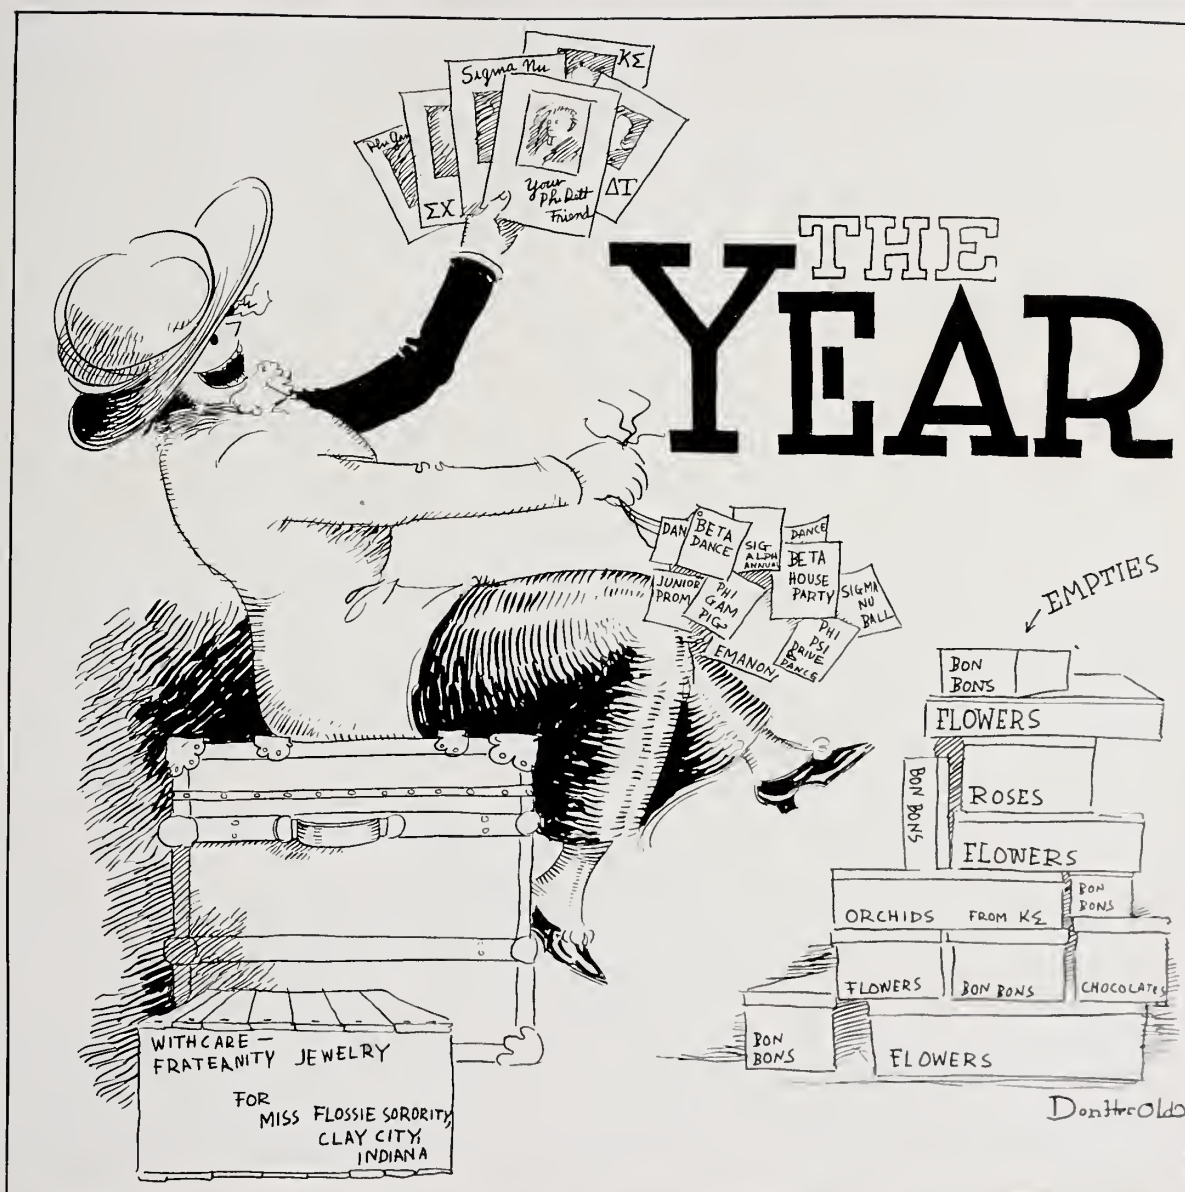 KΣ
Sigma Nu
Phi Gam
ΣX
Your
Phi Delt
Friend
ΔT
THE
YEAR
DAN
BETA
DANCE
SIG
ALPH
ANNUAL
DANCE
BETA
HOUSE
PARTY
JUNIOR
PROM
PHI
GAM
PIG
SIGMA
NU
BALL
PHI
PSI
DRIVE
&
DANCE
EMANON
EMPTIES
BON
BONS
FLOWERS
BON BONS
ROSES
FLOWERS
ORCHIDS FROM KΣ
BON
BONS
FLOWERS
BON BONS
CHOCOLATES
BON
BONS
FLOWERS
WITH CARE —
FRATEANITY JEWELRY
FOR
MISS FLOSSIE SORORITY,
CLAY CITY,
INDIANA
Don Herold